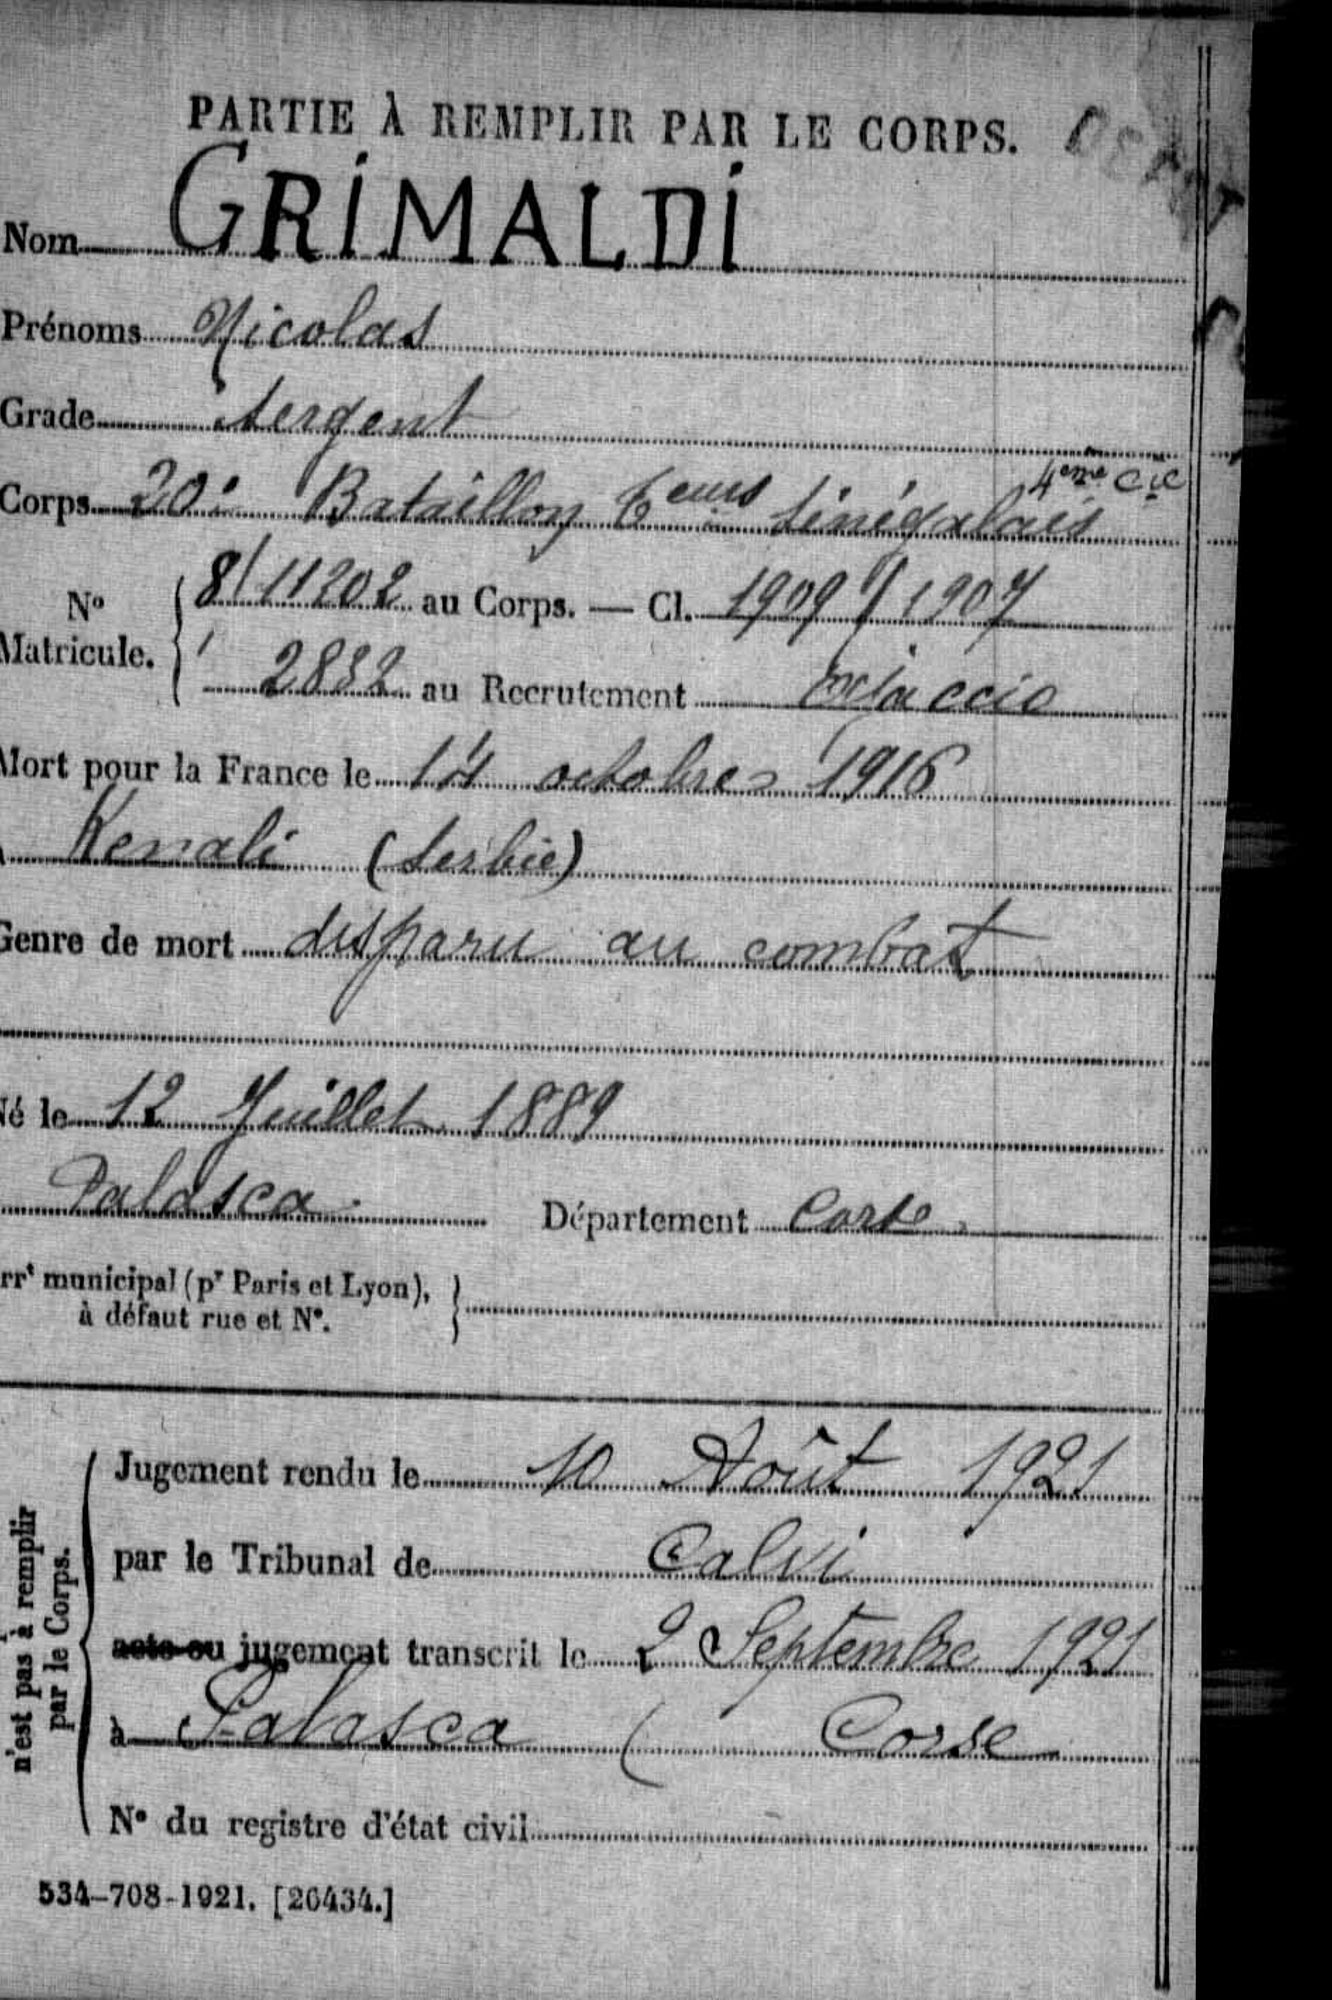 PARTIE À REMPLIR PAR LE CORPS.
Nom GRIMALDI
Prénoms Nicolas
Grade Sergent
4eme Cie
Corps 20e Bataillon Teurs Sénégalais
No Matricule. 8/11202 au Corps. — Cl. 1909 / 1907
2832 au Recrutement Ajaccio
Mort pour la France le 14 octobre 1916
Kenali (Serbie)
Genre de mort disparu au combat
Né le 12 Juillet 1889
Palasca. Département Corse
rrt municipal (pr Paris et Lyon),
à défaut rue et No.
n'est pas à remplir
par le Corps.
Jugement rendu le 10 Août 1921
par le Tribunal de Calvi
acte ou jugement transcrit le 2 Septembre 1921
à Palasca ( Corse
No du registre d'état civil
534-708-1921. [26434.]